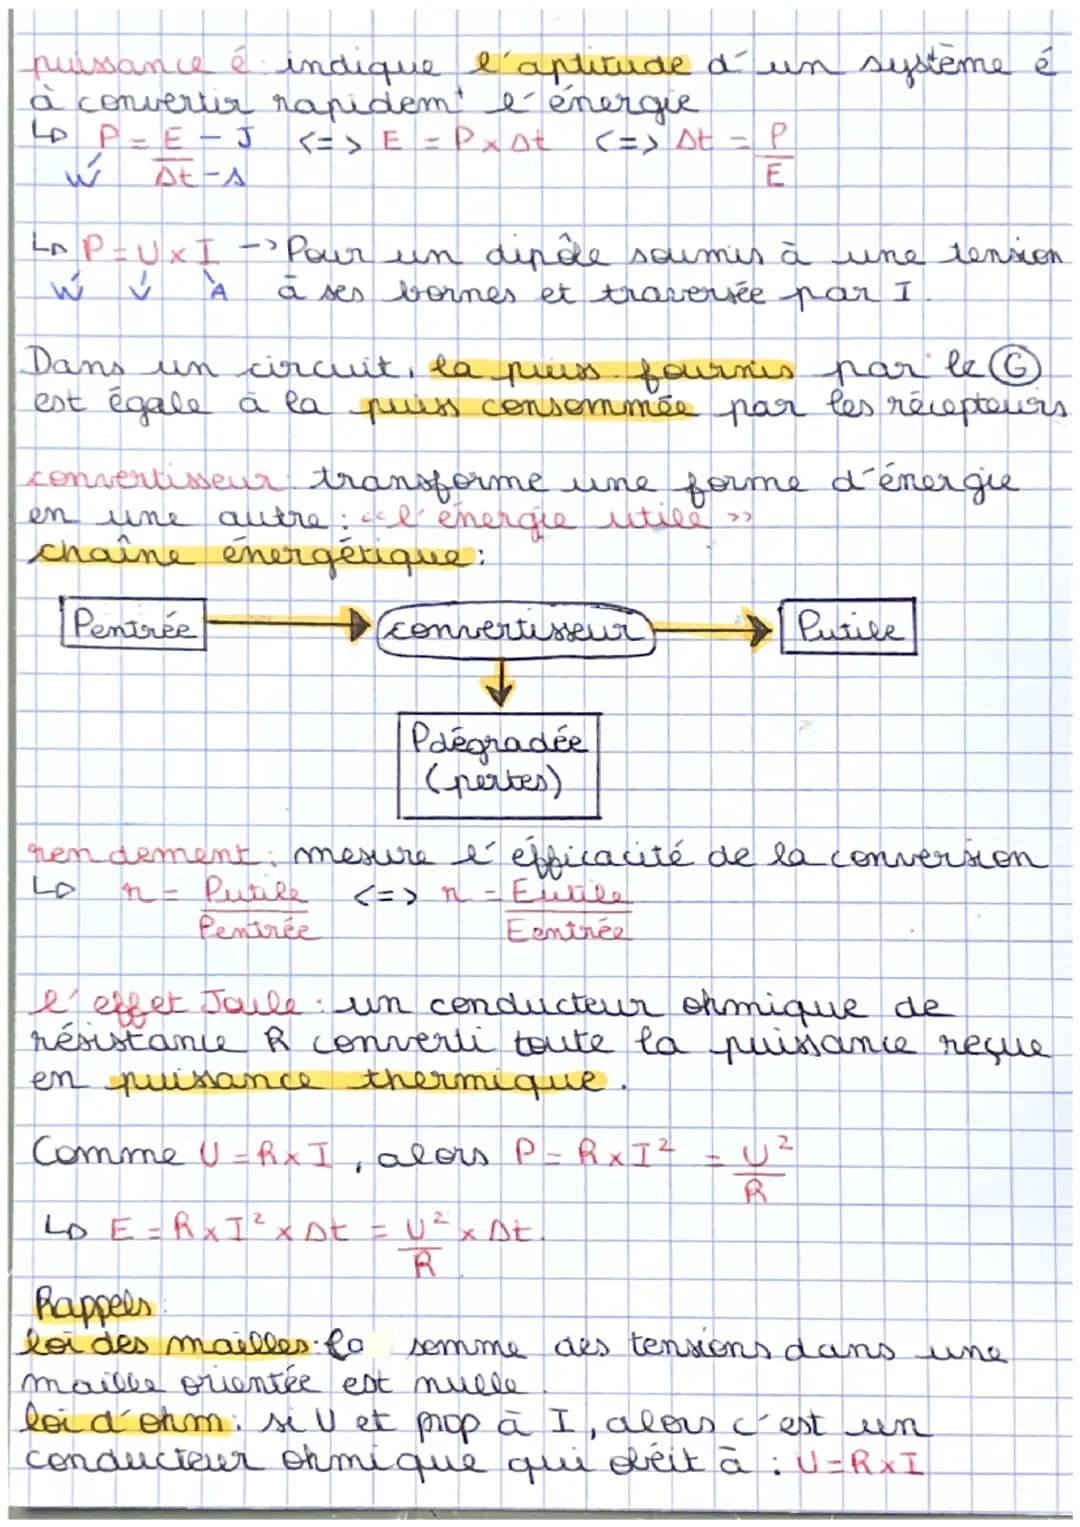 puissance é : indique l'aptitude d'un système é
à convertir rapidemt l'énergie
↳ P = E - J <=> E = P x Δt <=> Δt = P
W Δt - s E
↳ P = U x I -> Pour un dipôle soumis à une tension
W V A à ses bornes et traversée par I.
Dans un circuit, la puiss fournis par le G
est égale à la puiss consommée par les récepteurs
convertisseur : transforme une forme d'énergie
en une autre : «l'énergie utile»
chaîne énergétique :
Pentrée convertisseur Putile
Pdégradée
(pertes)
rendement : mesure l'éfficacité de la conversion
↳ n = Putile <=> n = Eutile
Pentrée Eentrée
l'effet Joule : un conducteur ohmique de
résistance R converti toute la puissance reçue
en puissance thermique.
Comme U = R x I, alors P = R x I² = U²
R
↳ E = R x I² x Δt = U² x Δt.
R
Rappels :
loi des mailles : la somme des tensions dans une
maille orientée est nulle.
loi d'ohm : si U et prop à I, alors c'est un
conducteur ohmique qui obéit à : U = R x I